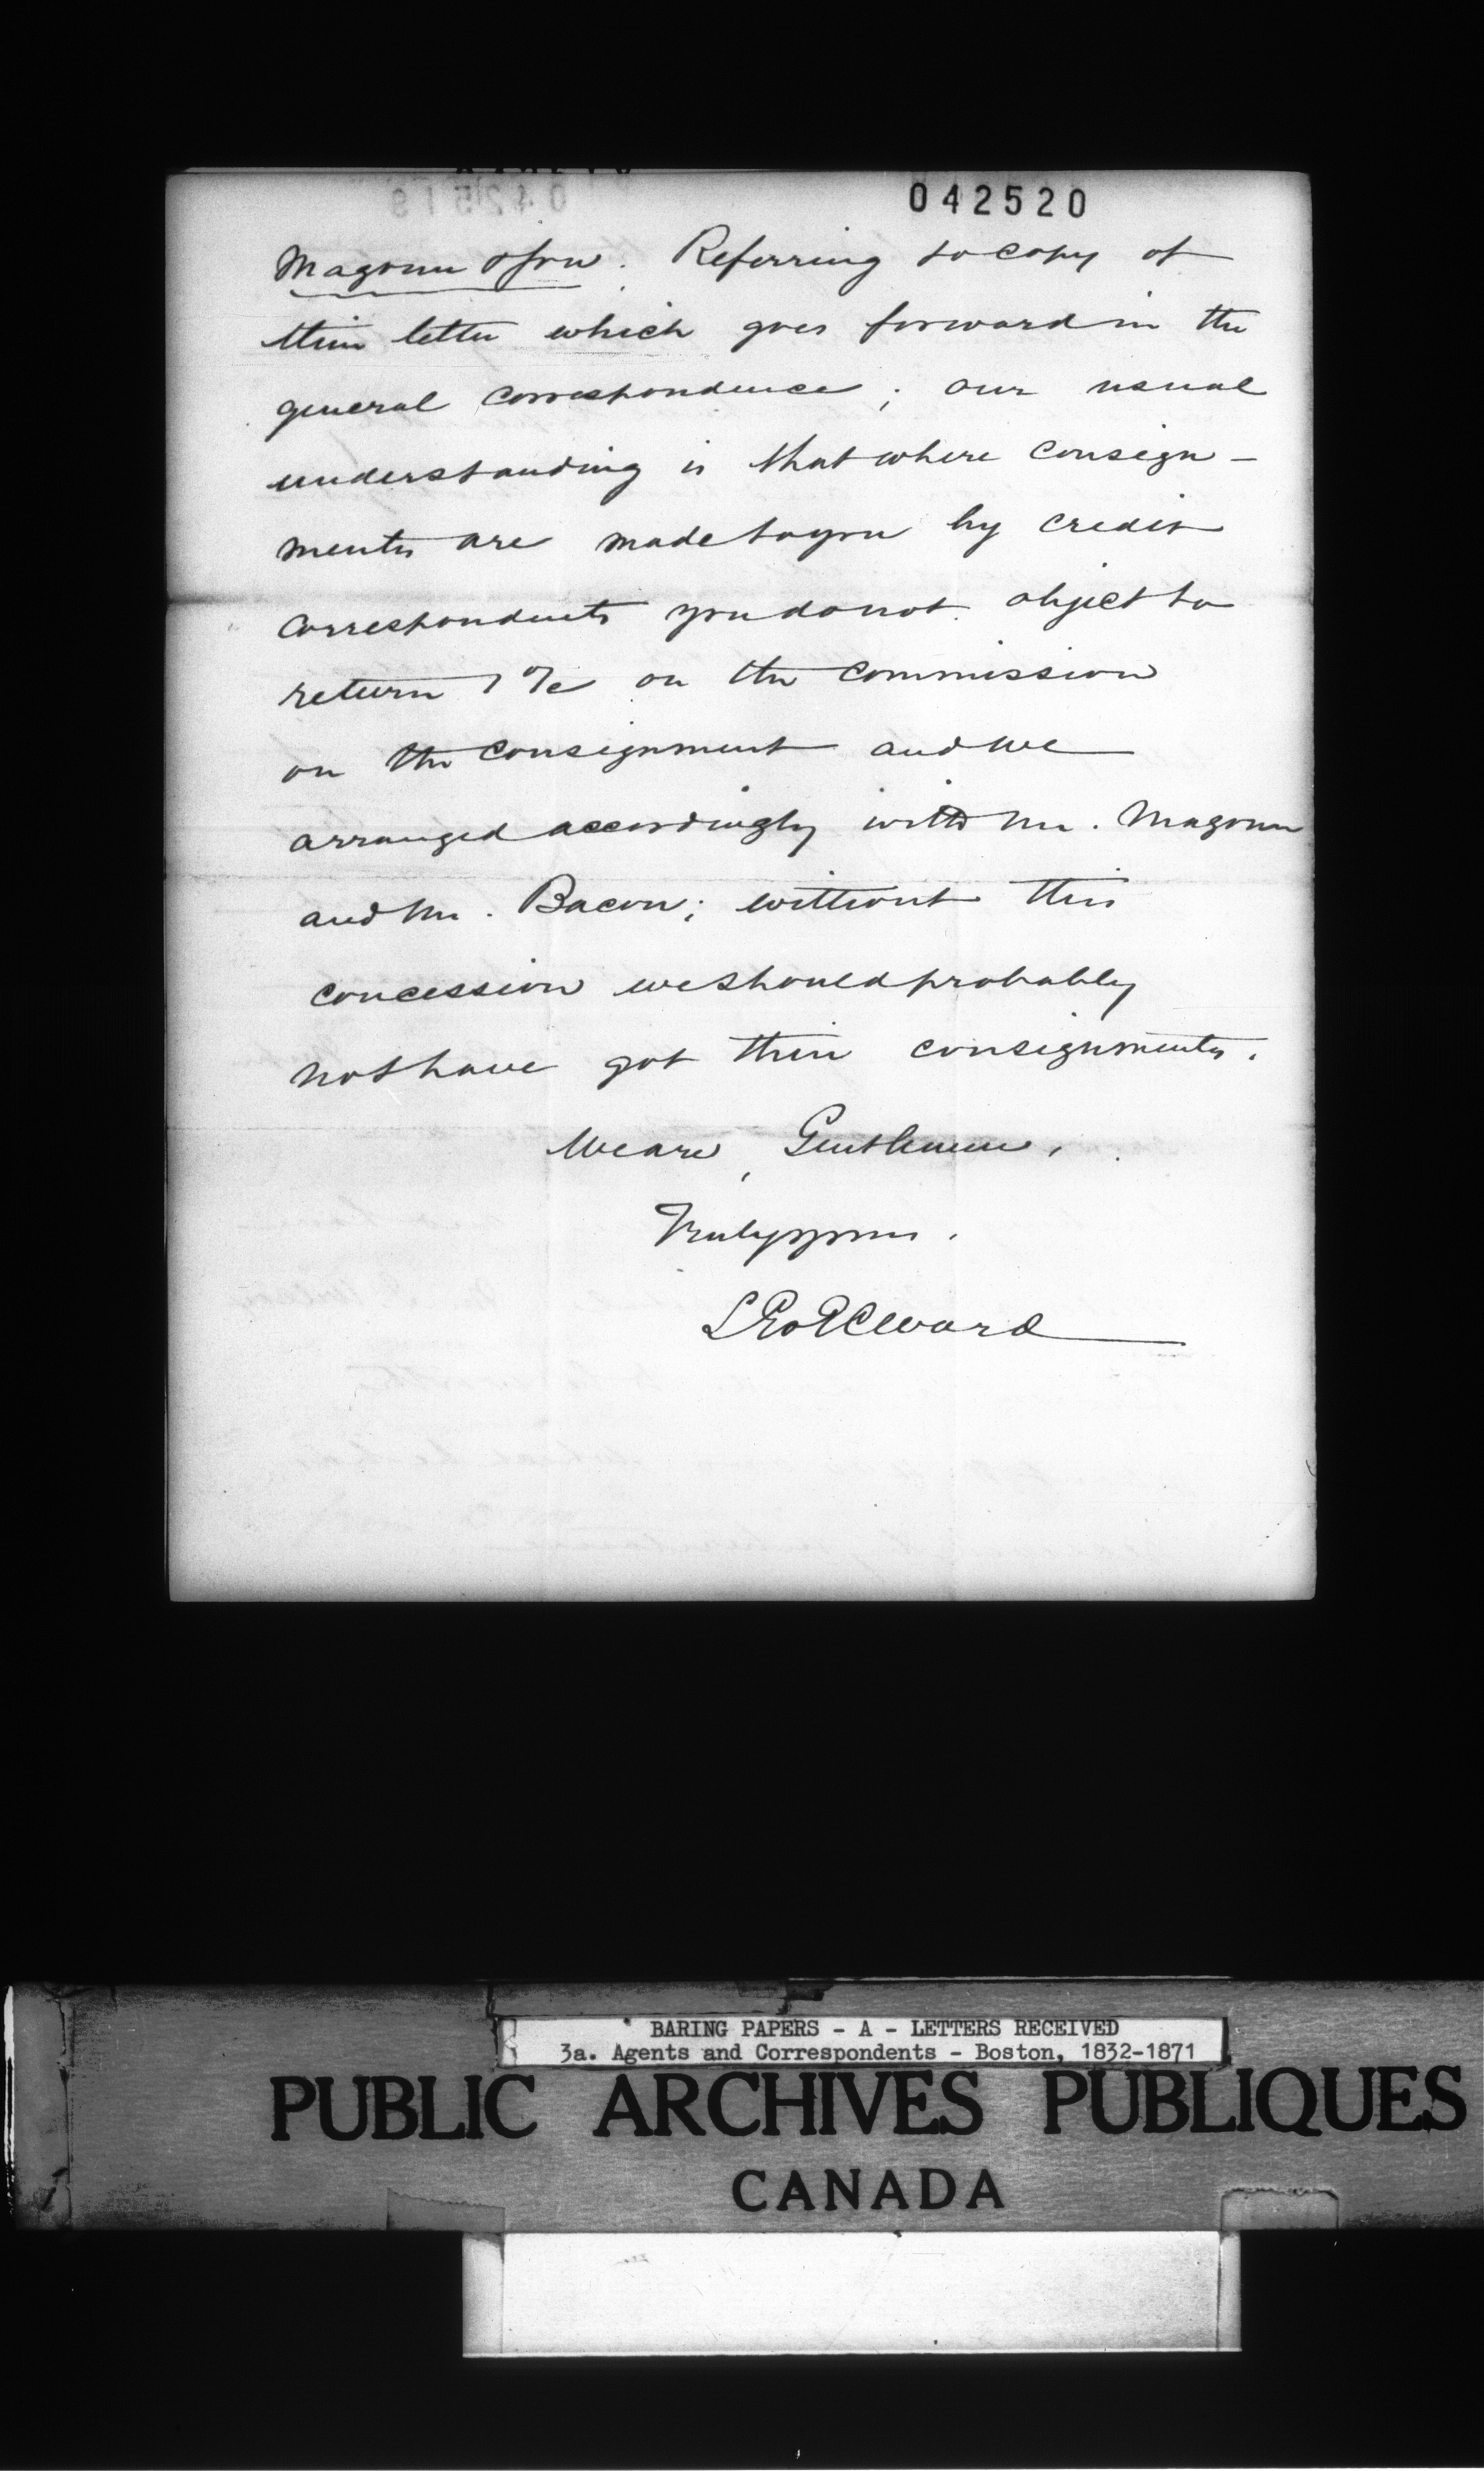 042520
Magoun & Son. Referring to copy of
their letter which goes forward in the
general correspondence; our usual
understanding is that where consign-
ments are made to you by credit
correspondents you do not object to
return 1% on the commission
on the consignment and we
arranged accordingly with Mr. Magoun
and Mr. Bacon; without this
concession we should probably
not have got their consignments.
We are, Gentlemen,
Truly yours.
Ward
BARING PAPERS - A - LETTERS RECEIVED
3a. Agents and Correspondents - Boston, 1832-1871
PUBLIC ARCHIVES PUBLIQUES
CANADA